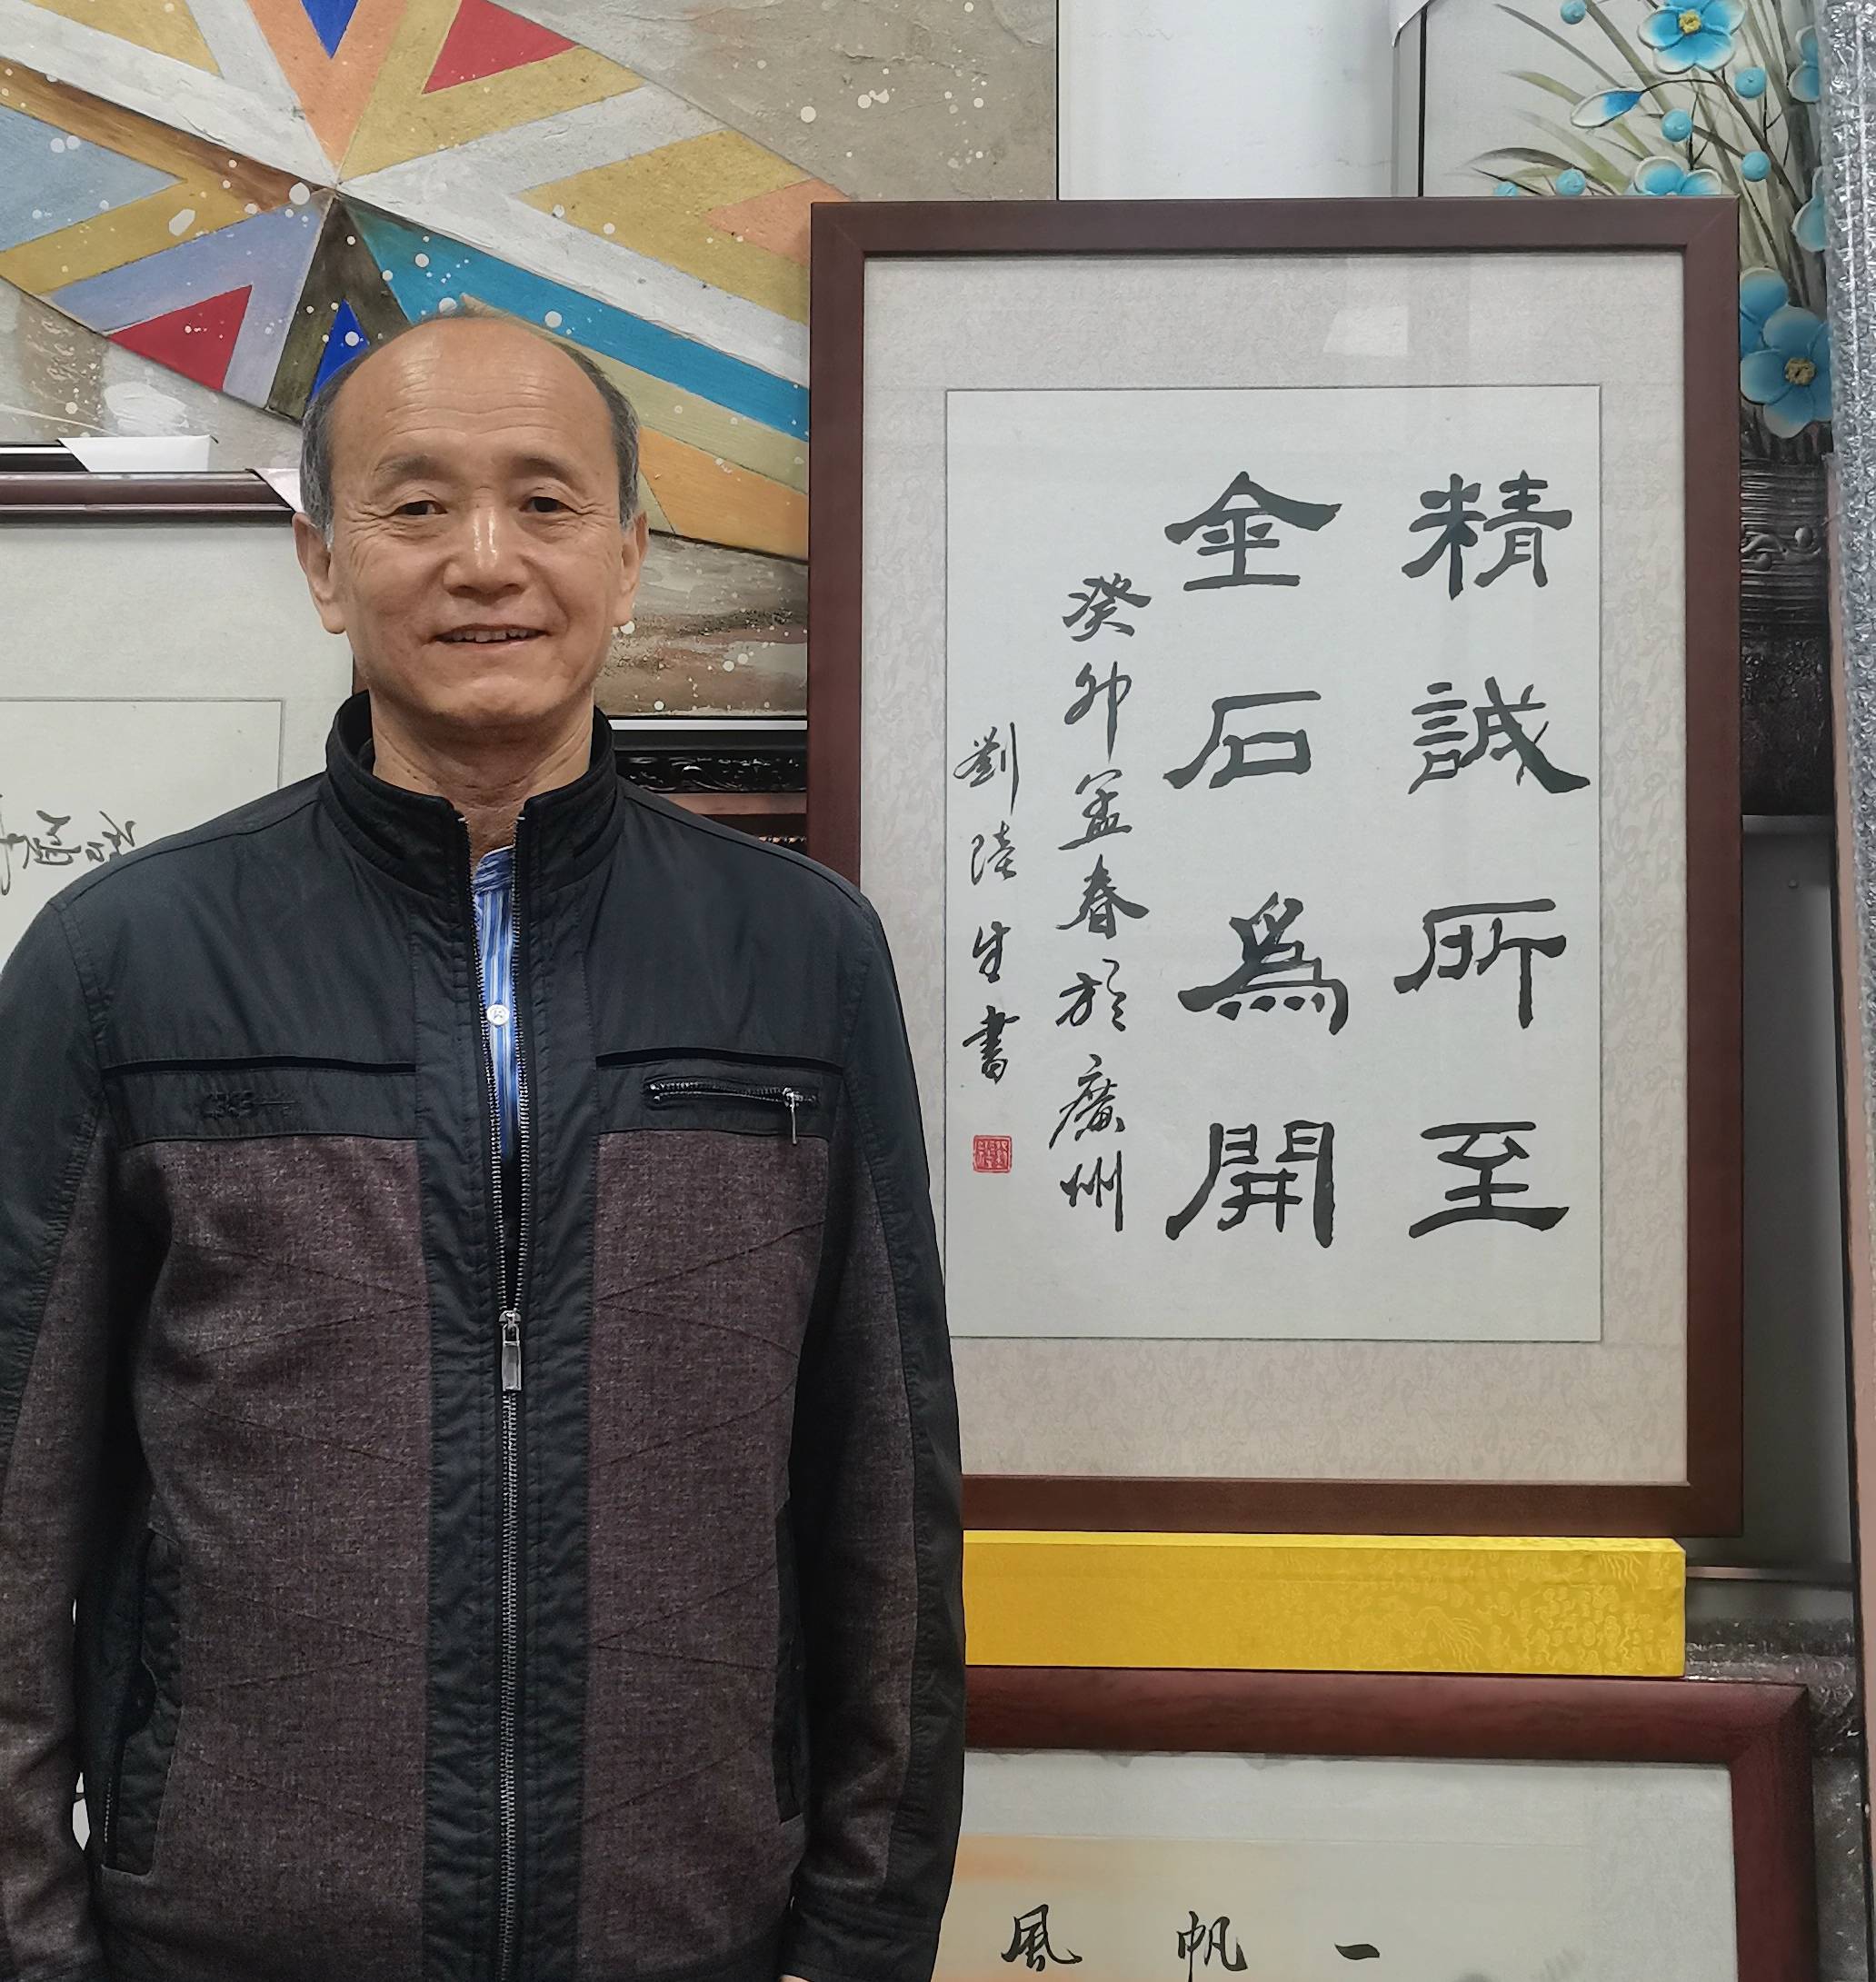 精誠所至
金石為開
癸卯孟春於廣州
劉陸生書
一帆風